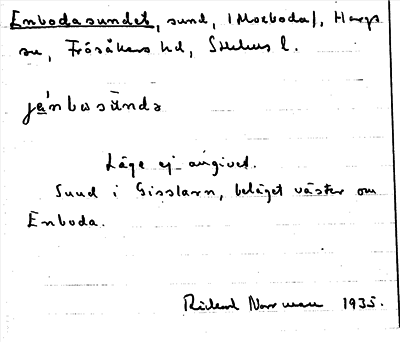 Enbodasundet, sund, (Moxboda), Hargs
sn, Frösåkers hd, Sthlms l.
Läge ej angivet.
Sund i Gisslarn, beläget väster om
Enboda.
Rickard Norrman 1935.